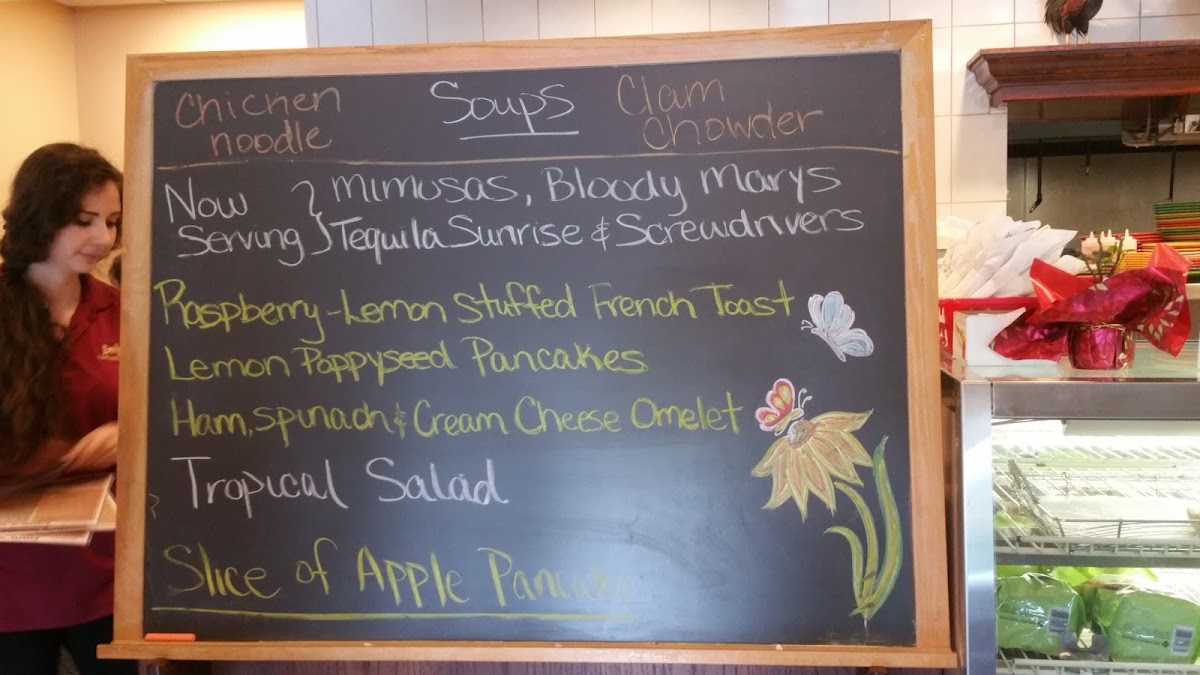 Soups
Chicken noodle
Clam Chowder
Now Serving } Mimusas, Bloody Marys
Tequila Sunrise & Screwdrivers
Raspberry-Lemon Stuffed French Toast
Lemon Poppyseed Pancakes
Ham, spinach & Cream Cheese Omelet
Tropical Salad
Slice of Apple Pancake